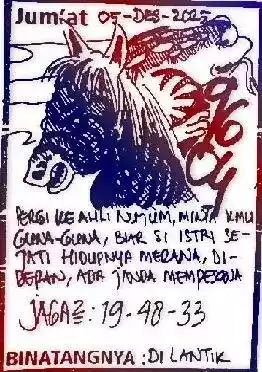 Jum'at 05-DES-2025
96
04
PERGI KE AHLI NUJUM, MINTA ILMU
GUNA-GUNA, BIAR SI ISTRI SE-
JATI HIDUPNYA MERANA, DI-
DEPAN, ADA JANDA MEMPESONA
JAGA2: 19-48-33
BINATANGNYA : DI LANTIK